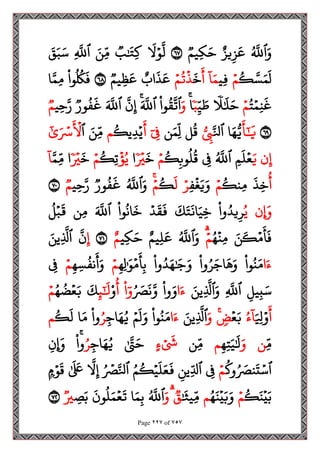 وَٱللَّهُ عَزِيزٌ حَكِيمٌ ٦٧ لَّوْلَا كِتَٰبٌ مِّنَ ٱللَّهِ سَبَقَ
لَمَسَّكُمْ فِيمَآ أَخَذْتُمْ عَذَابٌ عَظِيمٌ ٦٨ فَكُلُوا۟ مِمَّا
غَنِمْتُمْ حَلَٰلًا طَيِّبًا ۚ وَٱتَّقُوا۟ ٱللَّهَ ۚ إِنَّ ٱللَّهَ غَفُورٌ رَّحِيمٌ
٦٩ يَٰٓأَيُّهَا ٱلنَّبِىُّ قُل لِّمَن فِىٓ أَيْدِيكُم مِّنَ ٱلْأَسْرَىٰٓ
إِن يَعْلَمِ ٱللَّهُ فِى قُلُوبِكُمْ خَيْرًا يُؤْتِكُمْ خَيْرًا مِّمَّآ
أُخِذَ مِنكُمْ وَيَغْفِرْ لَكُمْ ۗ وَٱللَّهُ غَفُورٌ رَّحِيمٌ ٧٠
وَإِن يُرِيدُوا۟ خِيَانَتَكَ فَقَدْ خَانُوا۟ ٱللَّهَ مِن قَبْلُ
فَأَمْكَنَ مِنْهُمْ ۗ وَٱللَّهُ عَلِيمٌ حَكِيمٌ ٧١ إِنَّ ٱلَّذِينَ
ءَامَنُوا۟ وَهَاجَرُوا۟ وَجَٰهَدُوا۟ بِأَمْوَٰلِهِمْ وَأَنفُسِهِمْ فِى
سَبِيلِ ٱللَّهِ وَٱلَّذِينَ ءَاوَوا۟ وَّنَصَرُوٓا۟ أُو۟لَٰٓئِكَ بَعْضُهُمْ
أَوْلِيَآءُ بَعْضٍ ۚ وَٱلَّذِينَ ءَامَنُوا۟ وَلَمْ يُهَاجِرُوا۟ مَا لَكُم
مِّن وَلَٰيَتِهِم مِّن شَىْءٍ حَتَّىٰ يُهَاجِرُوا۟ ۚ وَإِنِ
ٱسْتَنصَرُوكُمْ فِى ٱلدِّينِ فَعَلَيْكُمُ ٱلنَّصْرُ إِلَّا عَلَىٰ قَوْمٍۭ
بَيْنَكُمْ وَبَيْنَهُم مِّيثَٰقٌ ۗ وَٱللَّهُ بِمَا تَعْمَلُونَ بَصِيرٌ ٧٢
Page ٢٢٧ of ٧٥٧